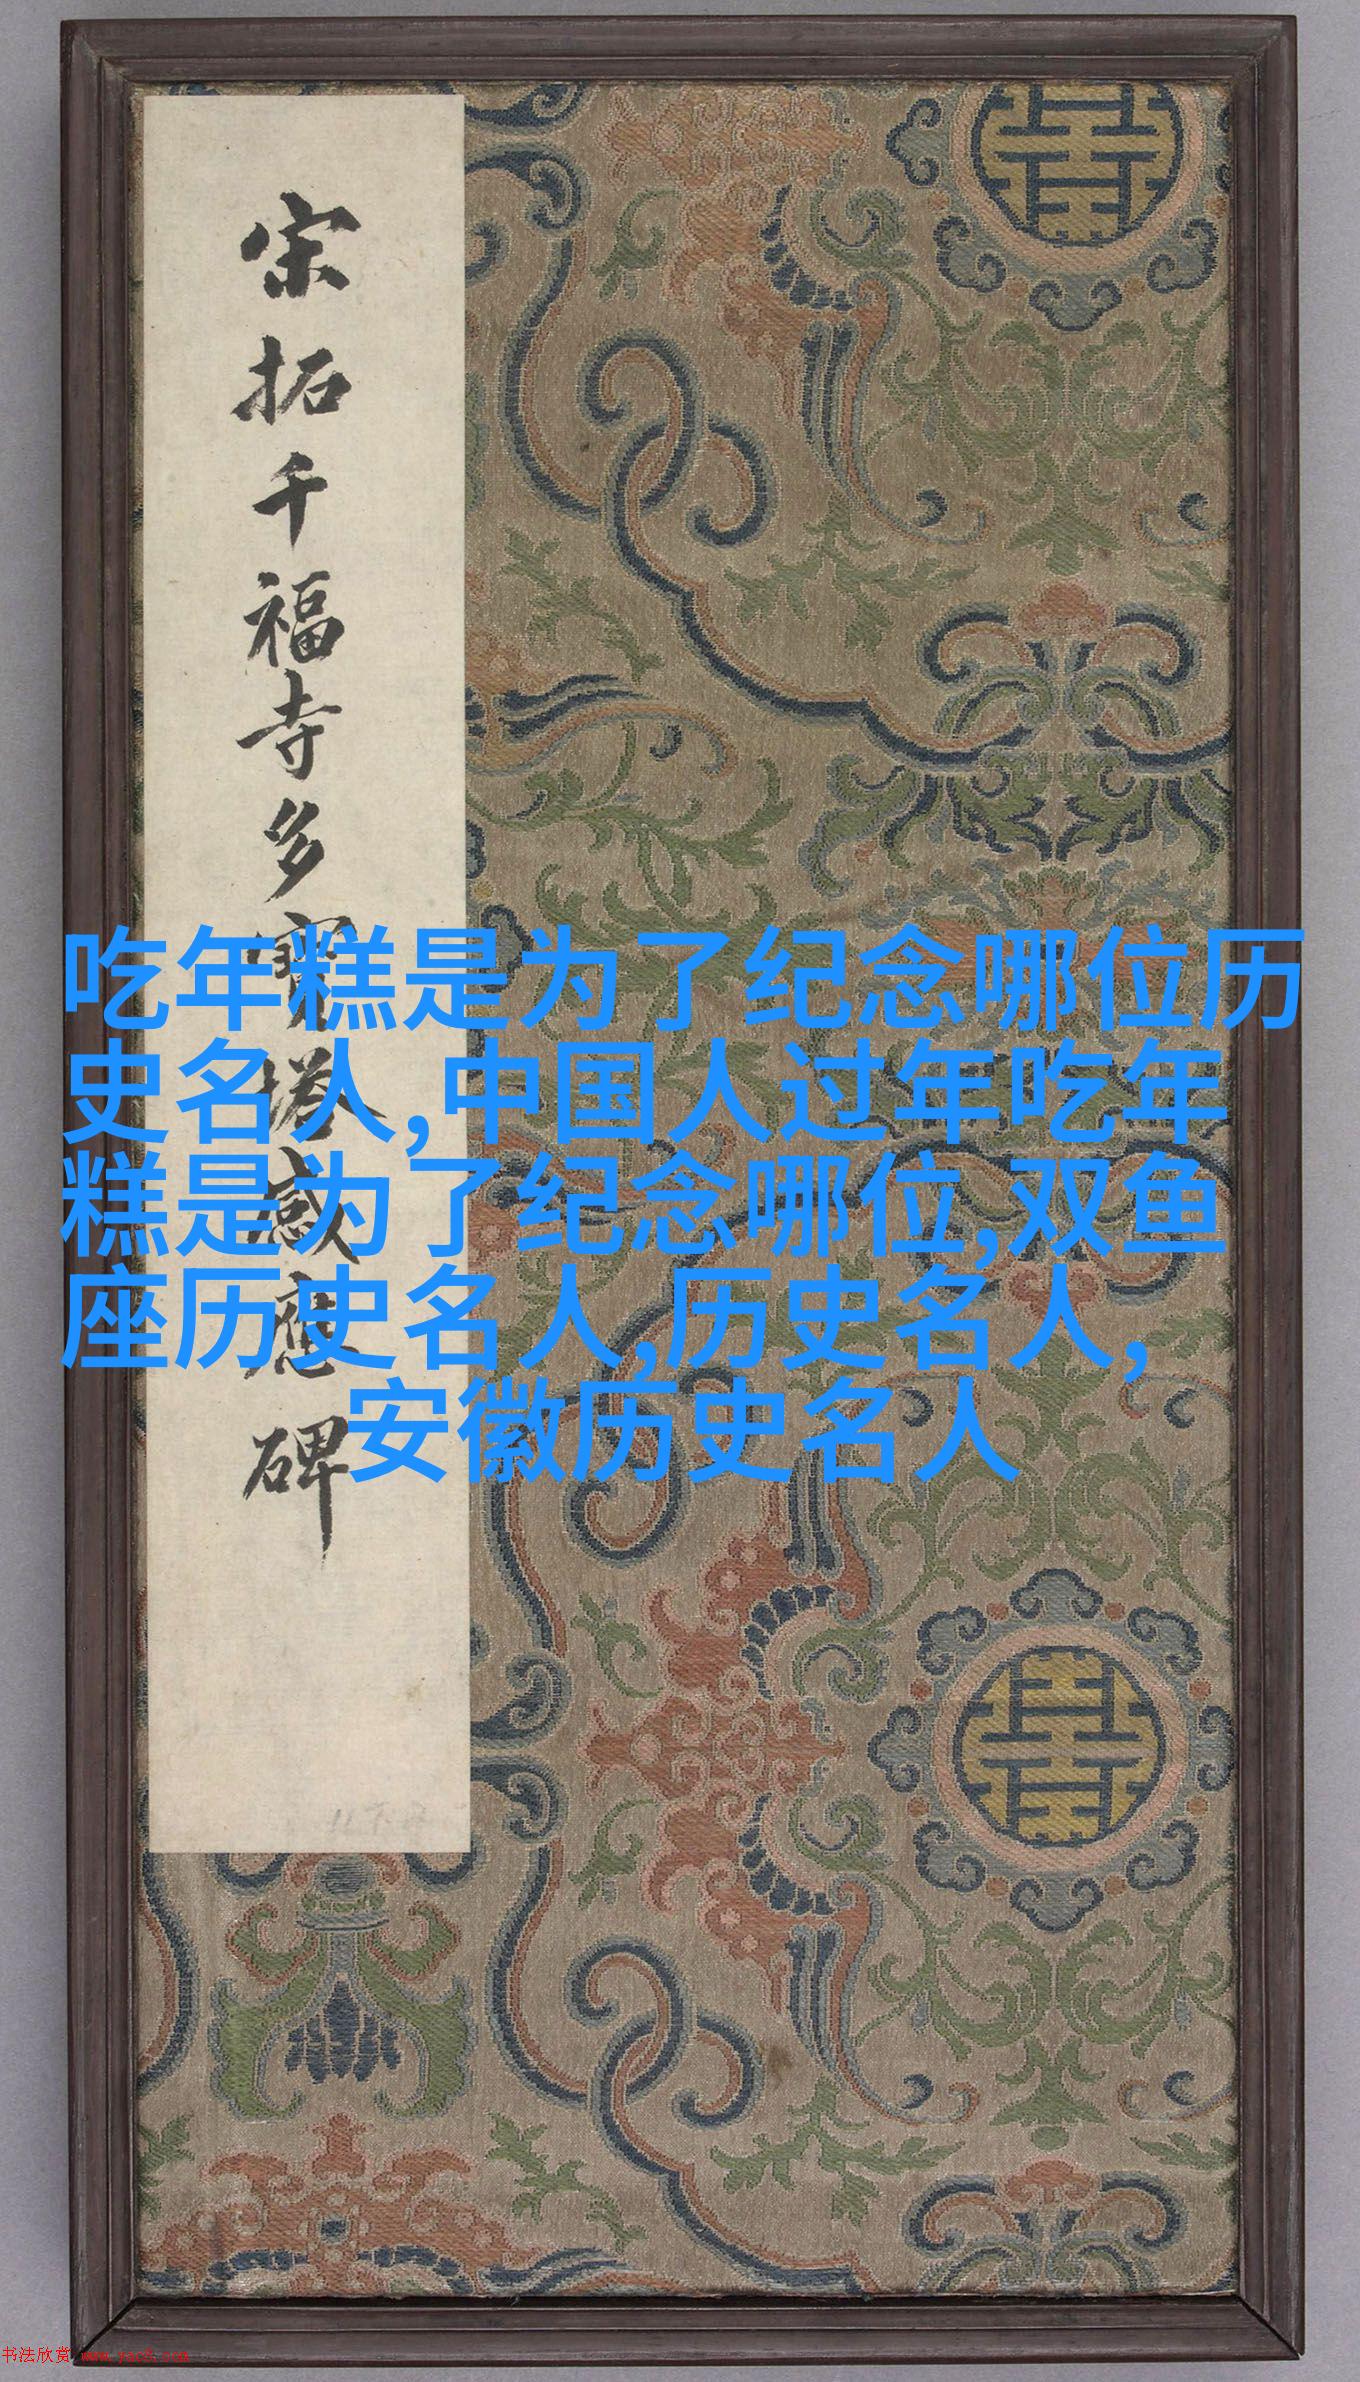 宋拓千福寺多寶塔感應碑
吃年糕是为了纪念哪位历
史名人,中国人过年吃年
糕是为了纪念哪位,双鱼
座历史名人,历史名人,
安徽历史名人
书法欣赏